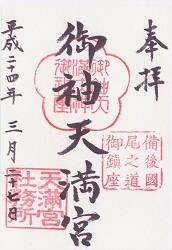 奉拝
備後國
尾之道
御鎮座
御袖天満宮
天満宮
社務所
平成二十四年三月二十七日